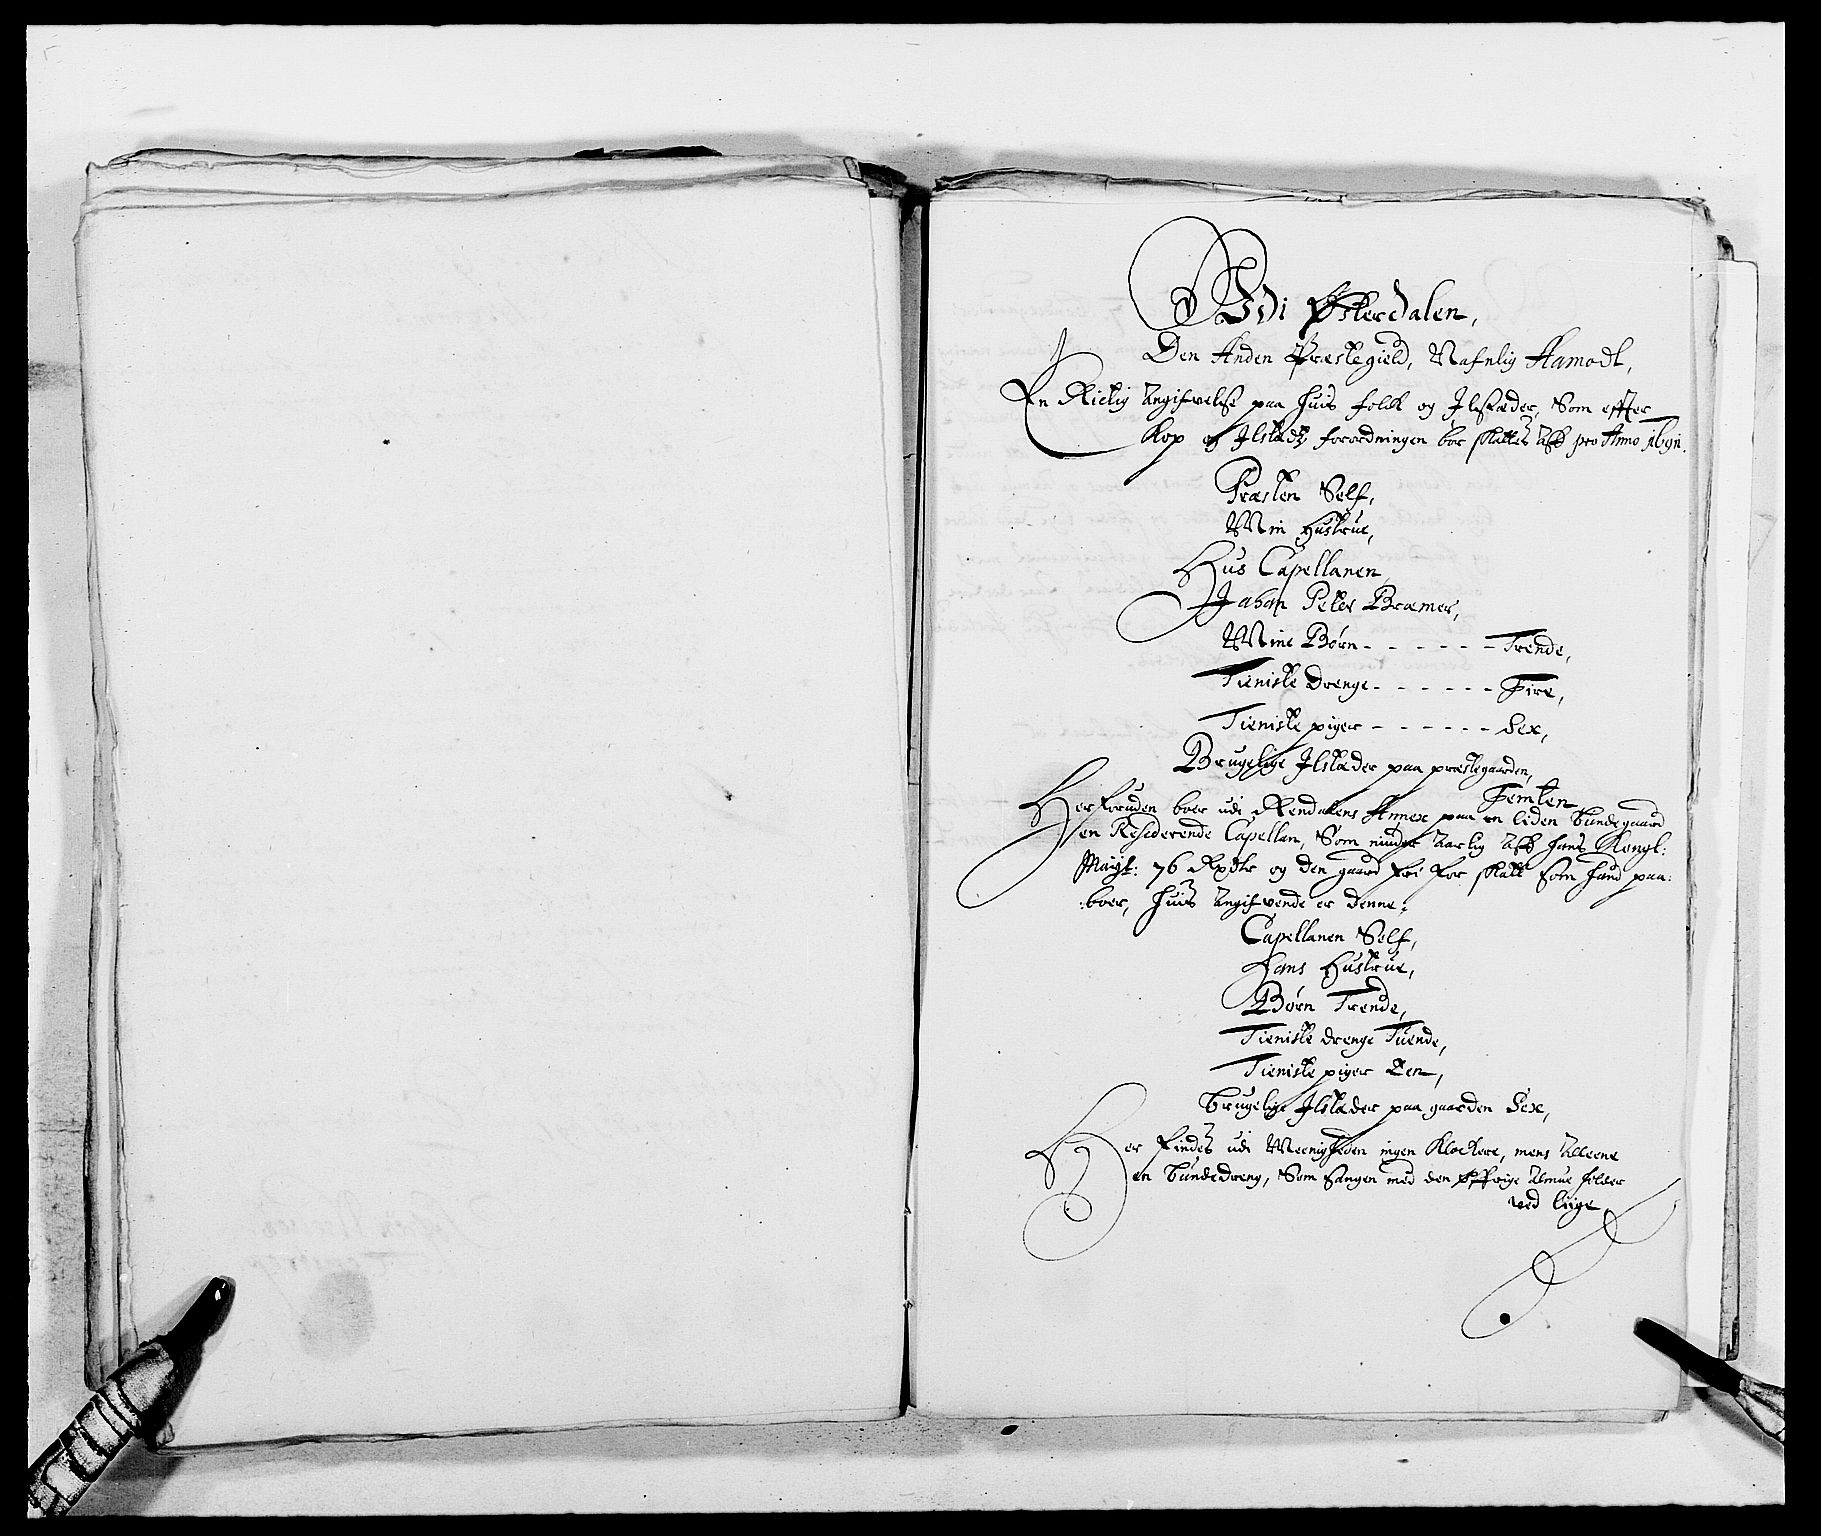 Udi Østerdalen,
Den Anden Præstegield, Nafnlig Aamodt,
En Rictig Angifvelse paa huis folck og Ilstæder, Som effter
Kop og Ilstedz forordningen bør skattes aff pro Anno 1691.
Præsten Self,
Min Hustrue,
Hus Capellanen
Johan Peter Bræmer,
Mine Børn - - - - - - Trende,
Tieniste Drenge - - - - - - Fire,
Tieniste piger - - - - - - Sex,
Brugelige Ilstæder paa præstegaarden,
Femten,
Herforuden boer udi Rendalens Annex paa en liden bundegaard
en Residerende Capellan, Som niuder Aarlig aff hans Kongl:
Mayt: 76 Rixdlr og den gaard fri for skatt som hand paa:
:boer, huis Angifvende er denne:
Capellanen Self,
Hans Hustrue,
Børn Trende,
Tieniste drenge Tuende,
Tieniste piger Een,
brugelige Ilstæder paa gaarden Sex,
Her findes udi Meenigheden ingen Klockere, mens Alleene
en bundedreng, Som Sangen med den øffrige Almue holder
ved liige